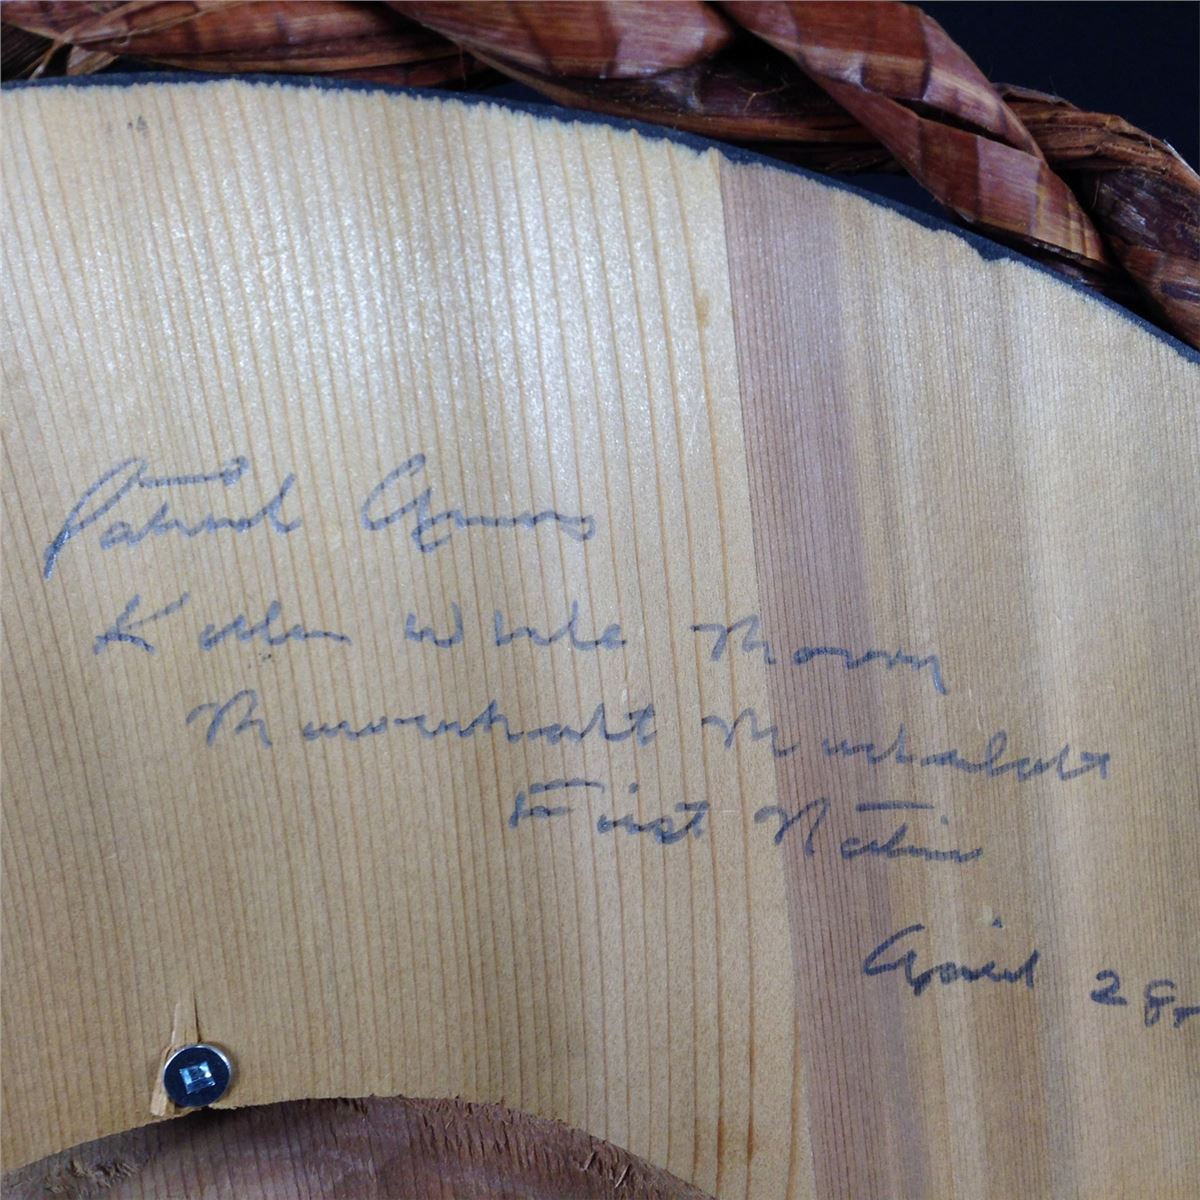 Patrick Amos
Killer Whale Moon
Mowachaht Muchalaht
First Nation
April 28,